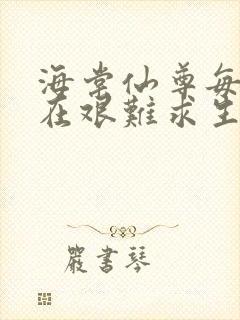 海棠仙尊每
在艰難求生
嚴書琴